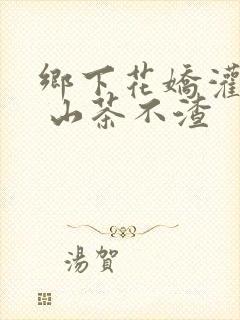 鄉下花嬌灌
山茶不渣
湯賀